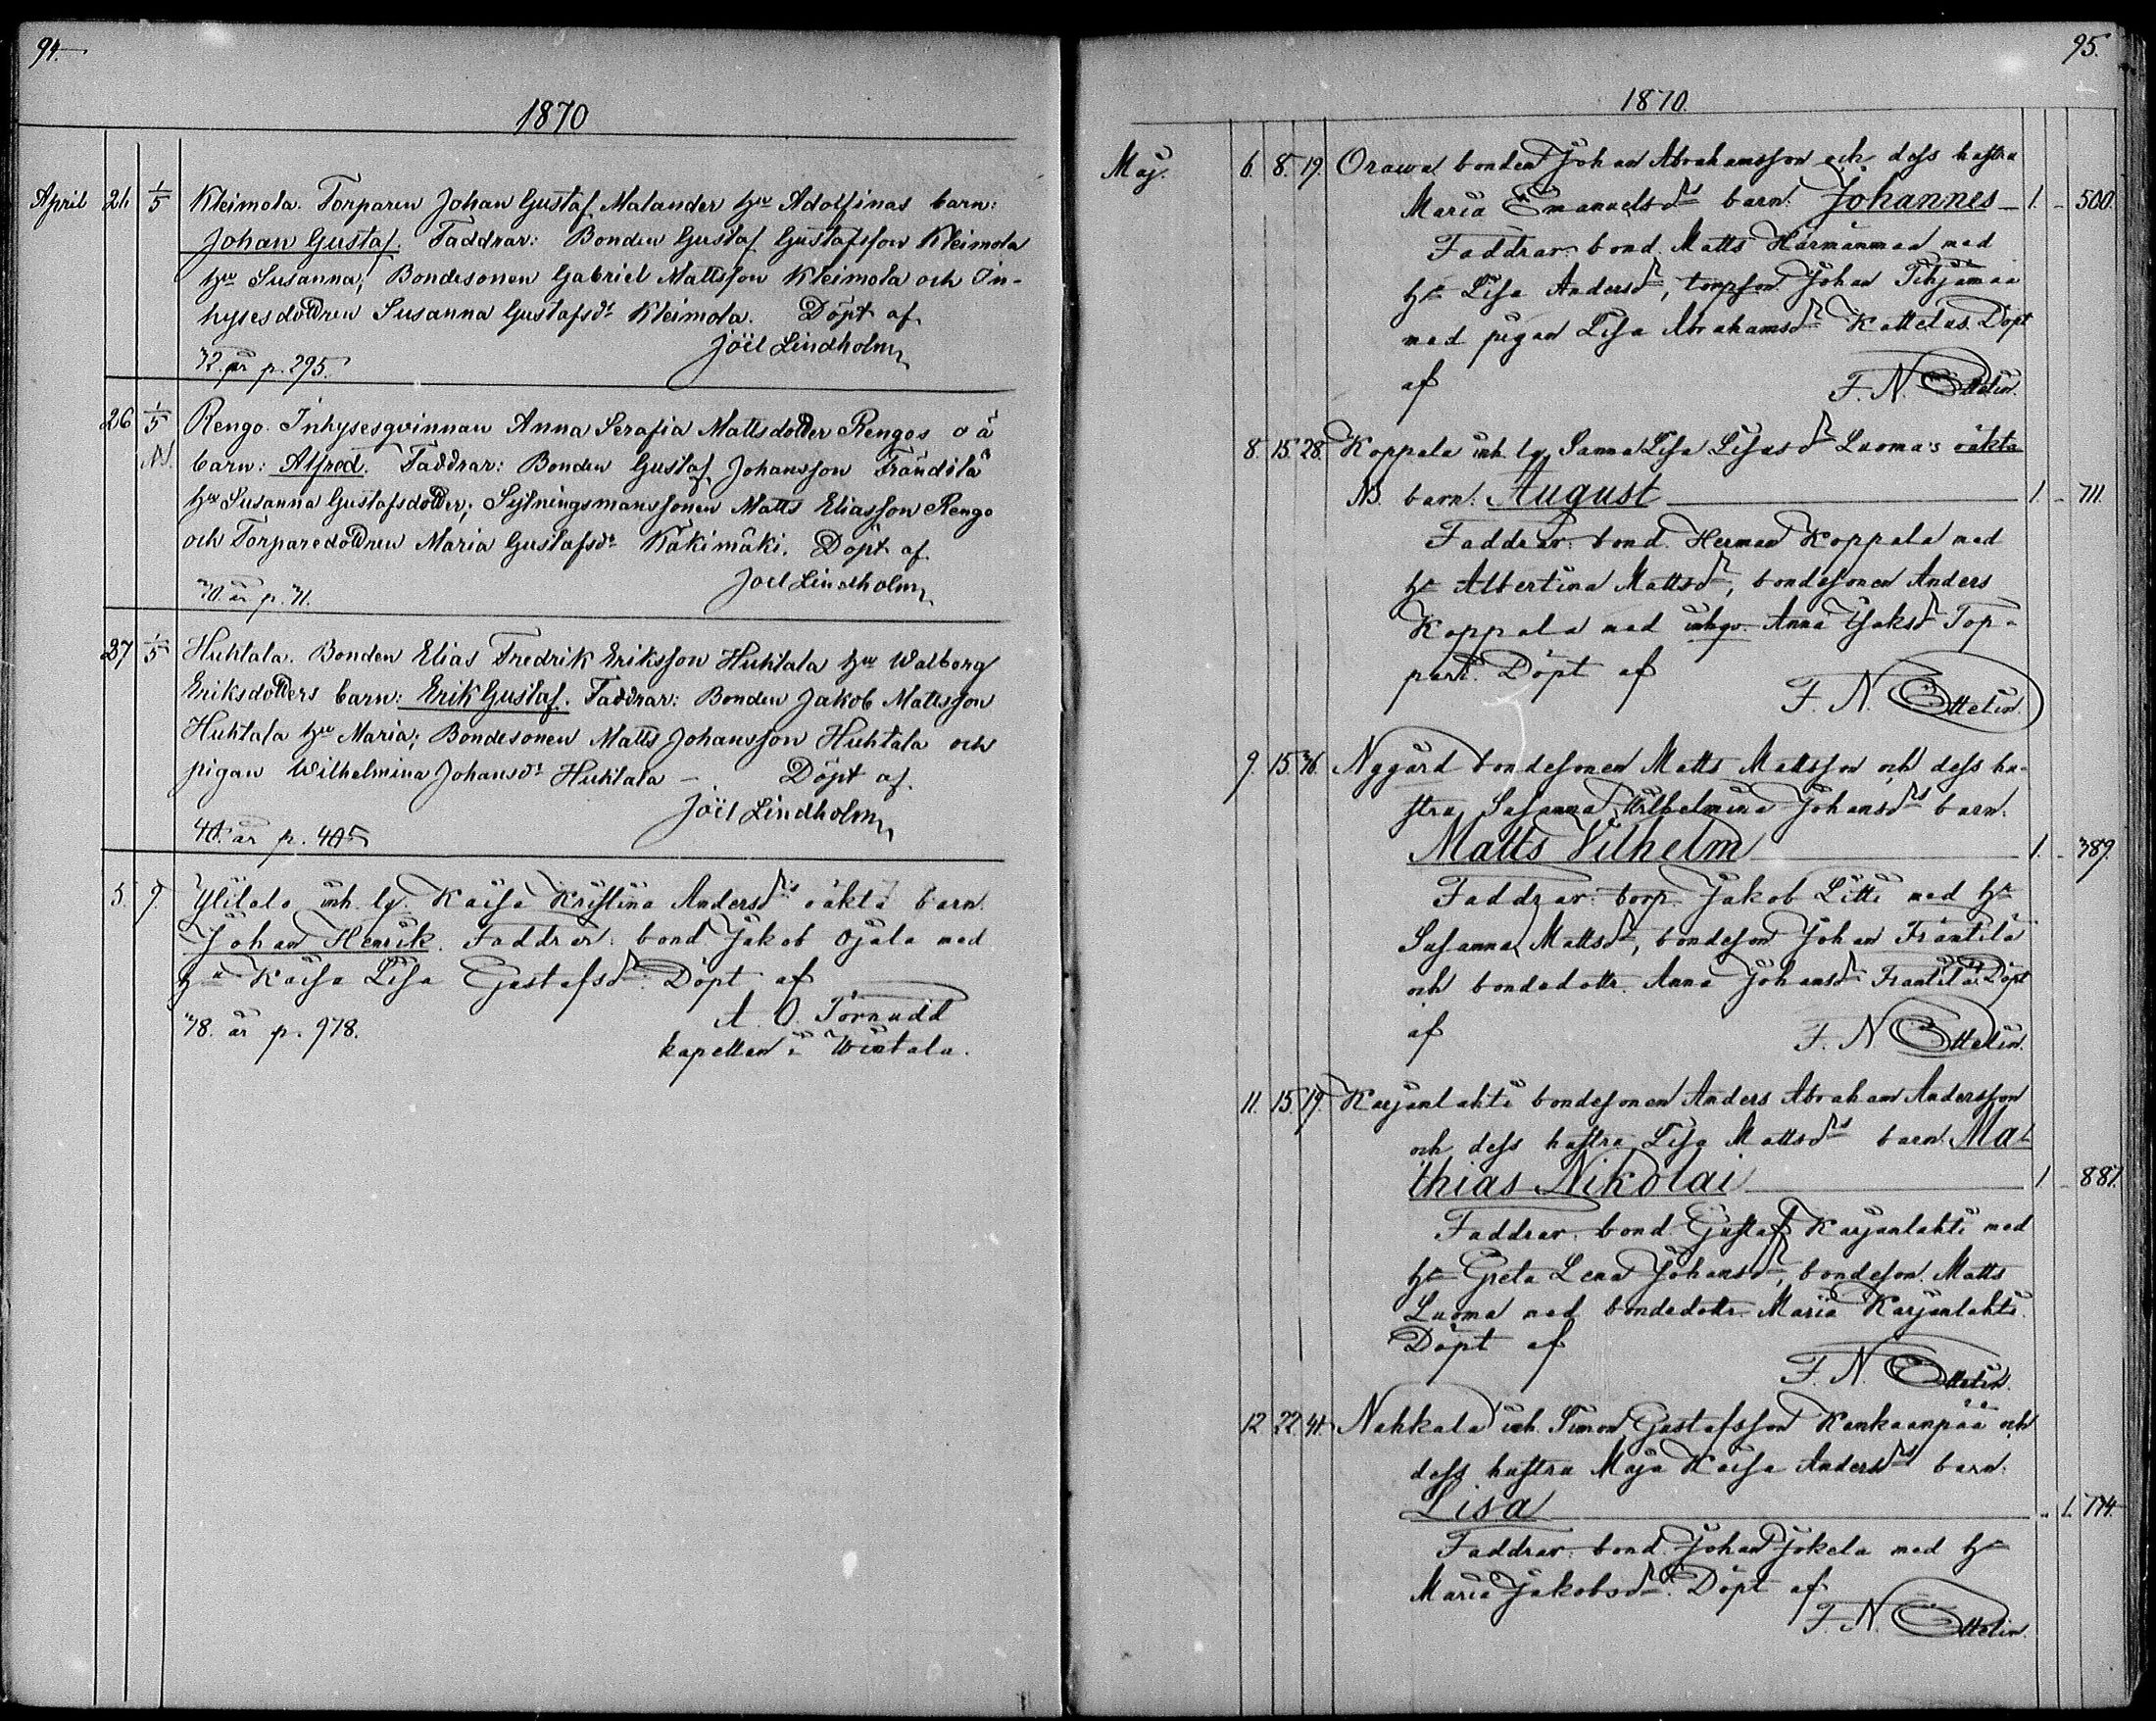 94.
1870
April 21 1/5 Kleimola. Torparen Johan Gustaf Malander hu Adolfinas barn:
Johan Gustaf. Faddrar: Bonden Gustaf Gustafsson Kleimola
hu Susanna; Bondesonen Gabriel Mattsson Kleimola och In-
hysesdottren Susanna Gustafsdr Kleimola. Döpt af
Joël Lindholm
32. år p. 295.
26 1/5 Rengo. Inhysesqvinnan Anna Serafia Mattsdotter Rengos o ä
N. barn: Alfred. Faddrar: Bonden Gustaf Johansson Frändilä
hu Susanna Gustafsdotter; Sytningsmanssonen Matts Eliasson Rengo
och Torparedottren Maria Gustafsdr Käkimäki. Döpt af
Joel Lindholm
30. år p. 71.
27 1/5 Huhtala. Bonden Elias Fredrik Eriksson Huhtala hu Walborg
Eriksdotters barn: Erik Gustaf. Faddrar: Bonden Jakob Mattsson
Huhtala hu Maria; Bondesonen Matts Johansson Huhtala och
pigan Wilhelmina Johansdr Huhtala — Döpt af
Joël Lindholm
år p.
5. 9. Ylitalo inh. lg. Kaisa Kristina Andersdrs oäkta barn.
Johan Henrik. Faddrar: bond. Jakob Ojala med
hu Kaisa Lisa Gustafsdr. Döpt af
A. O. Törnudd
38. år p. 978.
kapellan i Wirtala.
95.
1870.
Maj. 6. 8. 19. Orawa bonden Johan Abrahamsson och dess hustru
Maria Emanuelsdrs barn: Johannes — 1. - 500.
Faddrar: bond. Matts Härmänmaa med
hu Lisa Andersdr, torpson Johan
med pigan Lisa Abrahamsdr Kattelus. Döpt
af F. N. Ottelin.
8. 15. 28. Koppala inh. lg. Sanna Lisa Lisasdr Luoma's oäkta
N. barn: August — 1. - 711.
Faddrar: bond. Herman Koppala med
hu Albertina Mattsdr, bondesonen Anders
Koppala med inhqv. Anna Isaksdr Top-
pari. Döpt af
F. N. Ottelin.
9. 15. 36. Nygård bondesonen Matts Mattsson och dess hu-
stru Susanna Wilhelmina Johansdrs barn.
Matts Vilhelm — 1. - 389.
Faddrar: torp. Jakob Litti med hu
Susanna Mattsdr, bondeson Johan Frantila
och bondedottr. Anna Johansdr Frantila. Döpt
af F. N. Ottelin.
11. 15. 19. Karjanlahti bondesonen Anders Abraham Andersson
och dess hustru Lisa Mattsdrs barn. Ma-
thias Nikolai — 1. - 881.
Faddrar: bond. Gustaf Karjanlahti med
hu Greta Lena Johansdr, bondeson. Matts
Luoma med bondedottr. Maria Karjanlahti.
Döpt af
F. N. Ottelin.
12. 22. 41. Nahkala inh. Simon Gustafsson Kankaanpää och
dess hustru Maja Kaisa Andersdrs barn:
Lisa — " 1. 774.
Faddrar: bond. Johan Jokela med hu
Maria Jakobsdr. Döpt af
F. N. Ottelin.